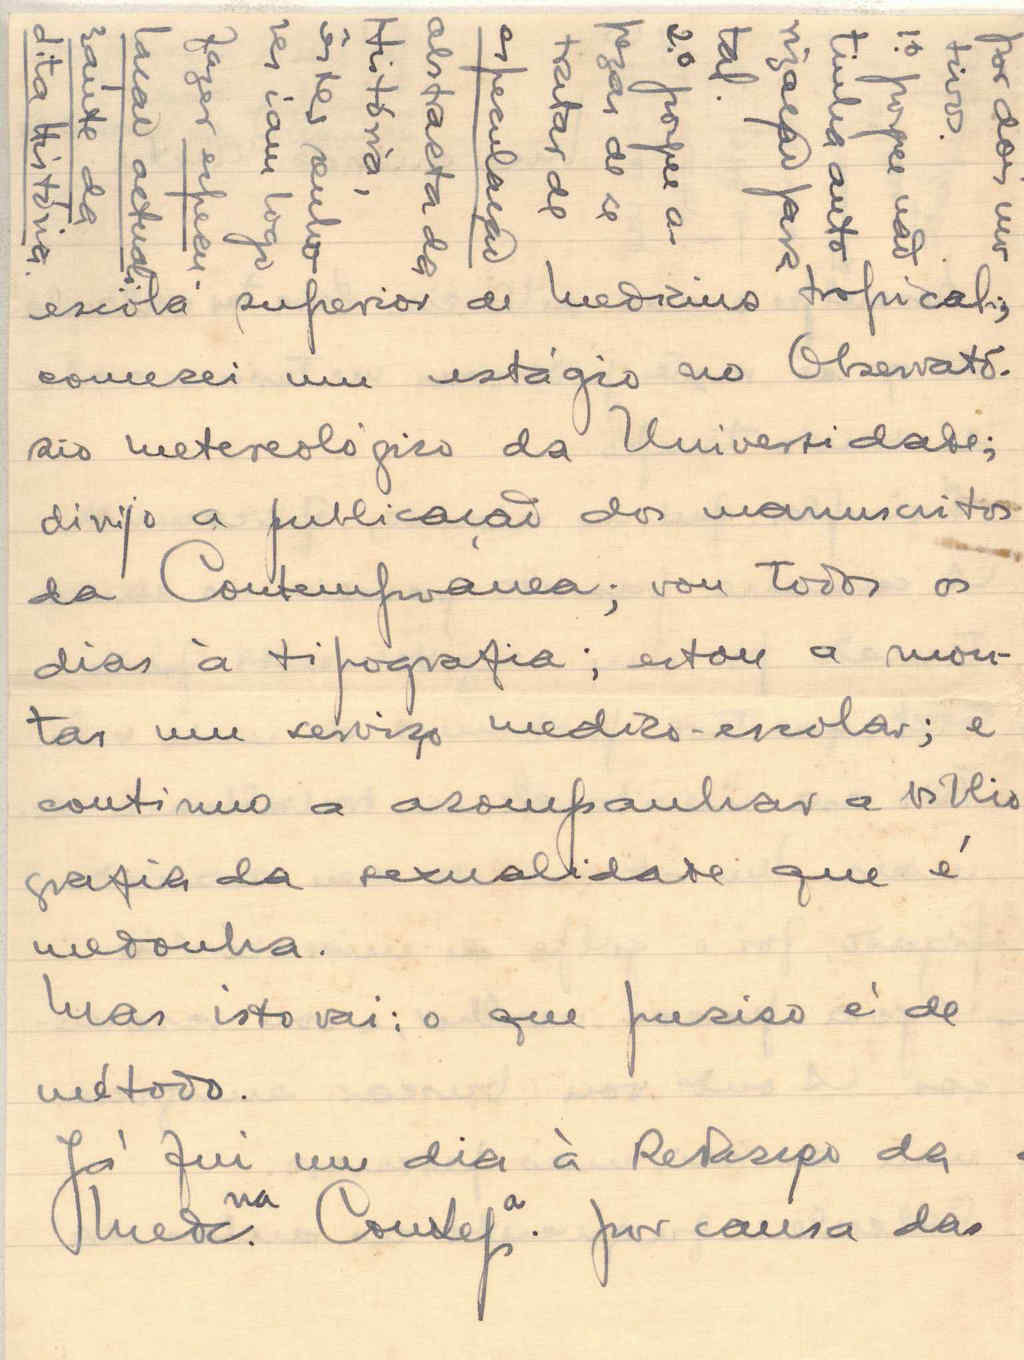 por dois mo
tivos.
1.º porque não
tinha auto
rização para
tal.
2.º porque a-
pezar de se
tratar de
especulação
abstracta da
História,
êstes senho
res iam logo
fazer especu
lação actuali
zante da
dita História.
escóla superior de medicina tropical;
comecei um estágio no Observató-
rio metereológico da Universidade;
dirijo a publicação dos manuscritos
da Contemporânea; vou todos os
dias à tipografia; estou a mon-
tar um serviço medico-escolar; e
continuo a acompanhar a biblio
grafia da sexualidade que é
medonha.
Mas isto vai: o que preciso é de
método.
Já fui um dia à Redacção da
Medc.na Contep.a por causa das